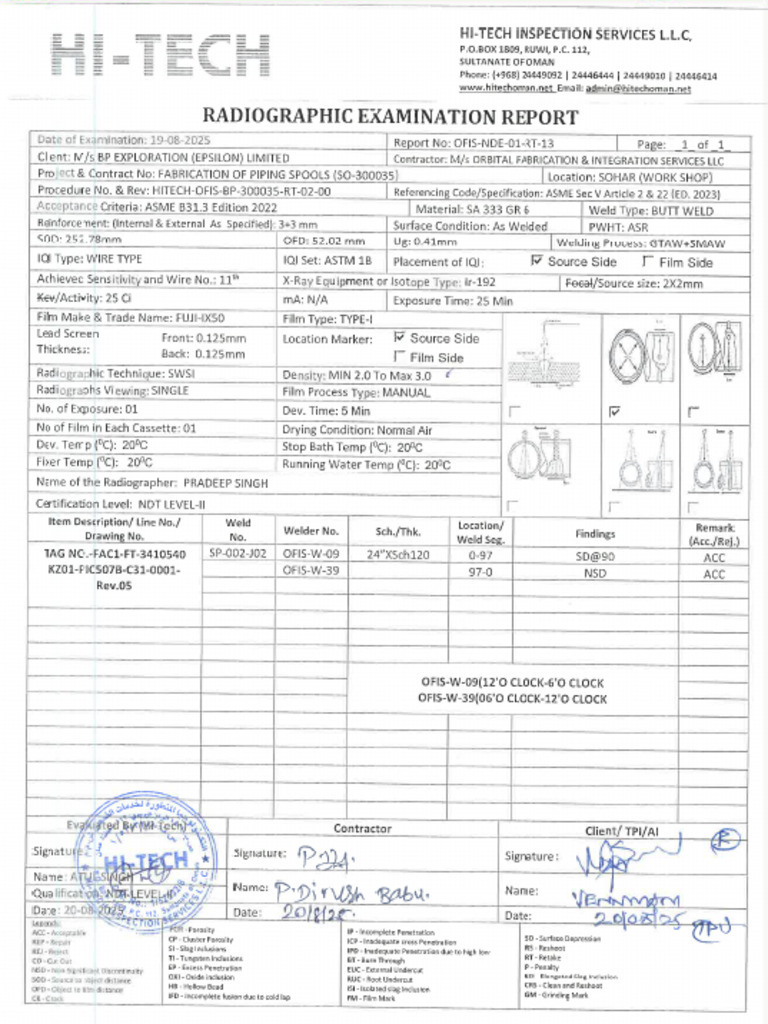 HI-TECH
HI-TECH INSPECTION SERVICES L.L.C,
P.O.BOX 1809, RUWI, P.C. 112,
SULTANATE OF OMAN
Phone: (+968) 24449092 | 24446444 | 24449010 | 24446414
www.hitechoman.net Email: admin@hitechoman.net
RADIOGRAPHIC EXAMINATION REPORT
Date of Examination: 19-08-2025 Report No: OFIS-NDE-01-RT-13 Page: 1 of 1
Client: M/s BP EXPLORATION (EPSILON) LIMITED Contractor: M/s ORBITAL FABRICATION & INTEGRATION SERVICES LLC
Project & Contract No: FABRICATION OF PIPING SPOOLS (SO-300035) Location: SOHAR (WORK SHOP)
Procedure No. & Rev: HITECH-OFIS-BP-300035-RT-02-00 Referencing Code/Specification: ASME Sec V Article 2 & 22 (ED. 2023)
Acceptance Criteria: ASME B31.3 Edition 2022 Material: SA 333 GR 6 Weld Type: BUTT WELD
Reinforcement: (Internal & External As Specified): 3+3 mm Surface Condition: As Welded PWHT: ASR
SOD: 252.78mm OFD: 52.02 mm Ug: 0.41mm Welding Process: GTAW+SMAW
IQI Type: WIRE TYPE IQI Set: ASTM 1B Placement of IQI: Source Side Film Side
Achieved Sensitivity and Wire No.: 11th X-Ray Equipment or Isotope Type: Ir-192 Focal/Source size: 2X2mm
Kev/Activity: 25 Ci mA: N/A Exposure Time: 25 Min
Film Make & Trade Name: FUJI-IX50 Film Type: TYPE-I
Lead Screen Thickness: Front: 0.125mm Location Marker: Source Side
Back: 0.125mm Film Side
Radiographic Technique: SWSI Density: MIN 2.0 To Max 3.0
Radiographs Viewing: SINGLE Film Process Type: MANUAL
No. of Exposure: 01 Dev. Time: 5 Min
No of Film in Each Cassette: 01 Drying Condition: Normal Air
Dev. Temp (⁰C): 20⁰C Stop Bath Temp (⁰C): 20⁰C
Fixer Temp (⁰C): 20⁰C Running Water Temp (⁰C): 20⁰C
Name of the Radiographer: PRADEEP SINGH
Certification Level: NDT LEVEL-II
Item Description/ Line No./ Drawing No. Weld No. Welder No. Sch./Thk. Location/ Weld Seg. Findings Remark (Acc./Rej.)
TAG NO.-FAC1-FT-3410540 SP-002-J02 OFIS-W-09 24"XSch120 0-97 SD@90 ACC
KZ01-PICS07B-C31-0001- OFIS-W-39 97-0 NSD ACC
Rev.05
OFIS-W-09(12'O CLOCK-6'O CLOCK
OFIS-W-39(06'O CLOCK-12'O CLOCK
Evaluated By (Hi-Tech) Contractor Client/ TPI/AI
Signature: Signature: Signature:
Name: ATUL SINGH Name: P. Dinesh Babu. Name:
Qualification: NDT LEVEL-II
Date: 20-08-2025 Date: 20/8/25 Date: 20/08/25
HI-TECH
Legends:
ACC - Acceptable
REP - Repair
REJ - Reject
CO - Cut Out
NSD - Non Significant Discontinuity
SOD - Source to object distance
OFD - Object to film distance
CR - Crack
POR - Porosity
CP - Cluster Porosity
SI - Slag Inclusions
TI - Tungsten Inclusions
EP - Excess Penetration
OXI - Oxide inclusion
HB - Hollow Bead
IFD - Incomplete fusion due to cold lap
IP - Incomplete Penetration
ICP - Inadequate cross Penetration
IPD - Inadequate Penetration due to high low
BT - Burn Through
EUC - External Undercut
RUC - Root Undercut
ISI - Isolated slag Inclusion
FM - Film Mark
SD - Surface Depression
RS - Reshoot
RT - Retake
P - Penalty
ESI - Elongated Slag Inclusion
CRS - Clean and Reshoot
GM - Grinding Mark